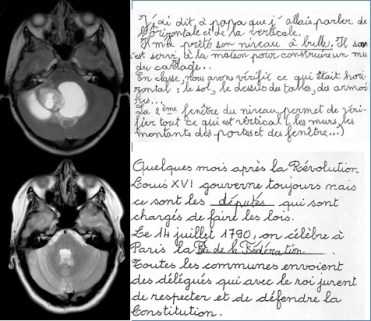 J'ai dit à papa que j'allais parler de
l'horizontale et de la verticale.
Il m'a prêté son niveau à bulle. Il s'en
est servi à la maison pour construire un mu
du carlage...
En classe, nous avons vérifié ce qui était hori-
zontal : le sol, le dessus de tables, des armoi
res...
La 2ème fenêtre du niveau permet de véri-
fier tout ce qui est vertical (les murs, les
montants des portes et des fenêtre...)
Quelques mois après la Révolution.
Louis XVI gouverne toujours mais
ce sont les députés qui sont
chargés de faire les lois.
Le 14 juillet 1790, on célèbre à
Paris la fête de la Fédération.
Toutes les communes envoient
des délégués qui avec le roi jurent
de respecter et de défendre la
Constitution.